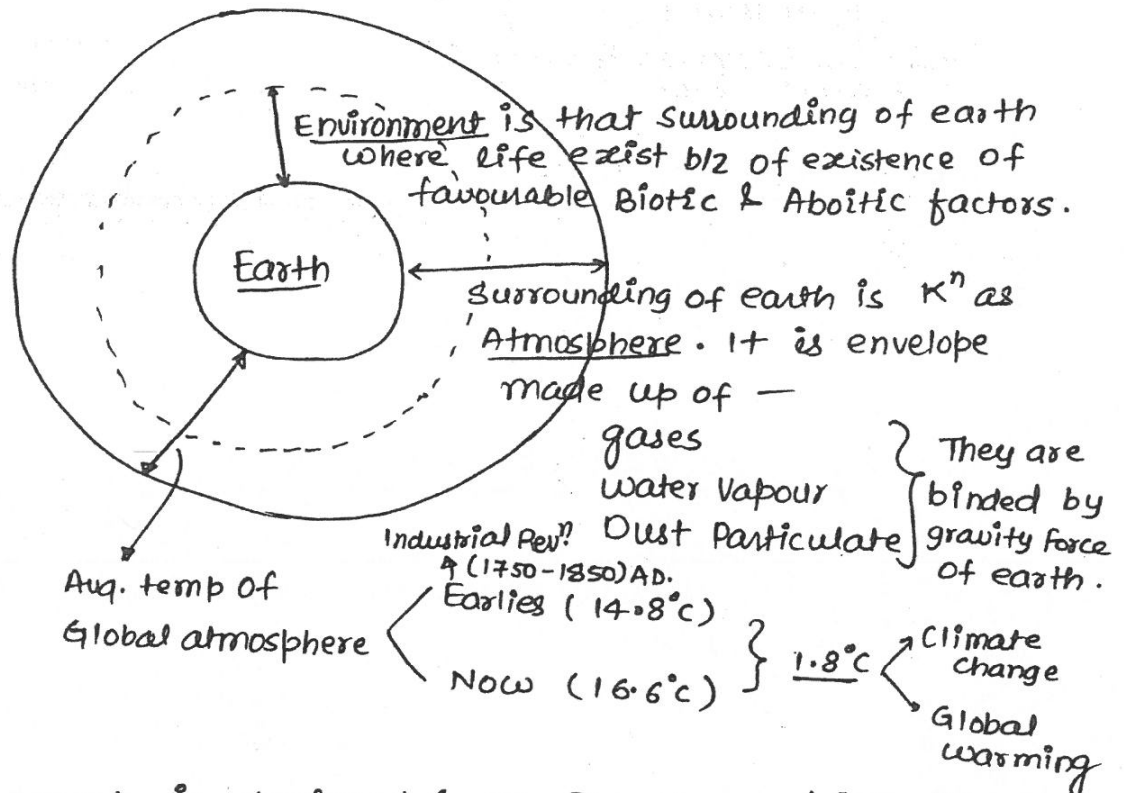 Environment is that surrounding of earth
where life exist b/z of existence of
favourable Biotic & Aboitic factors.
Earth
Surrounding of earth is Kⁿ as
Atmosphere. It is envelope
made up of —
gases
water vapour
Dust Particulate
They are
binded by
gravity force
of earth.
Industrial Revⁿ.
(1750-1850) AD.
Avg. temp of
Global atmosphere
Earlies (14.8°c)
Now (16.6°c)
1.8°c
Climate
change
Global
warming